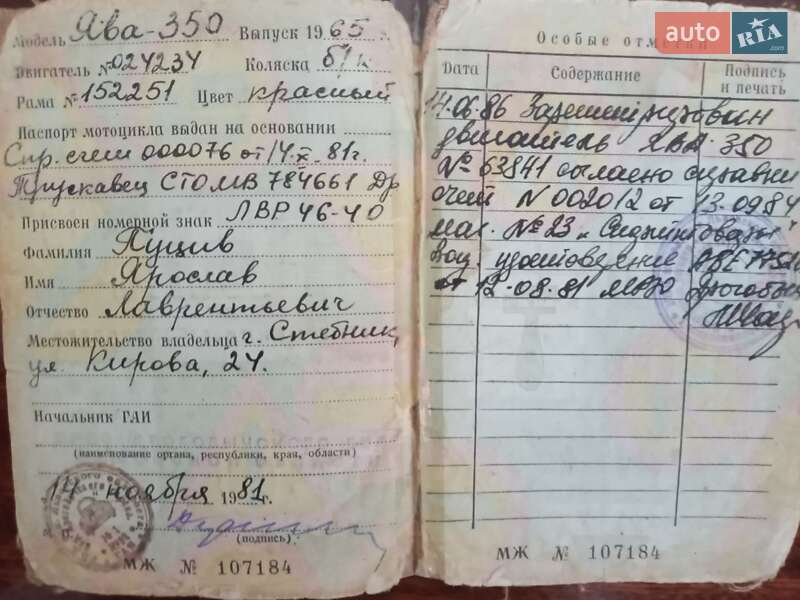 Модель Ява-350 Выпуск 1965 г.
Двигатель № 024234 Коляска б/к
Рама № 152251 Цвет красный
Паспорт мотоцикла выдан на основании
Спр. счет 000076 от 14.X.81г.
Трускавец СТОМВ 784661 Др
Присвоен номерной знак ЛВР 46-40
Фамилия Пуцив
Имя Ярослав
Отчество Лаврентьевич
Местожительство владельца г. Стебник,
ул. Кирова, 24.
Начальник ГАИ
(наименование органа, республики, края, области)
14 ноября 1981г.
(подпись)
МЖ № 107184
auto RIA .com
Особые отметки
Дата Содержание Подпись и печать
14.06.86 Зарегистрирован
двигатель ЯВА 350
№ 63841 согласно справки
счет N 002012 от 13.0984
маг. № 23
вод. удостоверение
от 12.08.81
МЖ № 107184